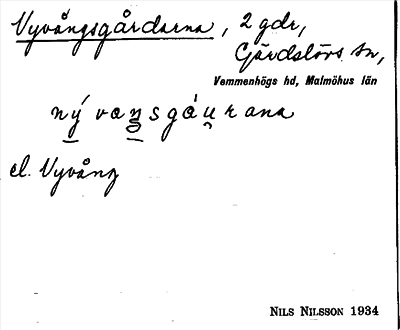 Vyvångsgårdarna, 2 gdr,
Gärdslövs sn,
Vemmenhögs hd, Malmöhus län
el. Vyvång
NILS NILSSON 1934